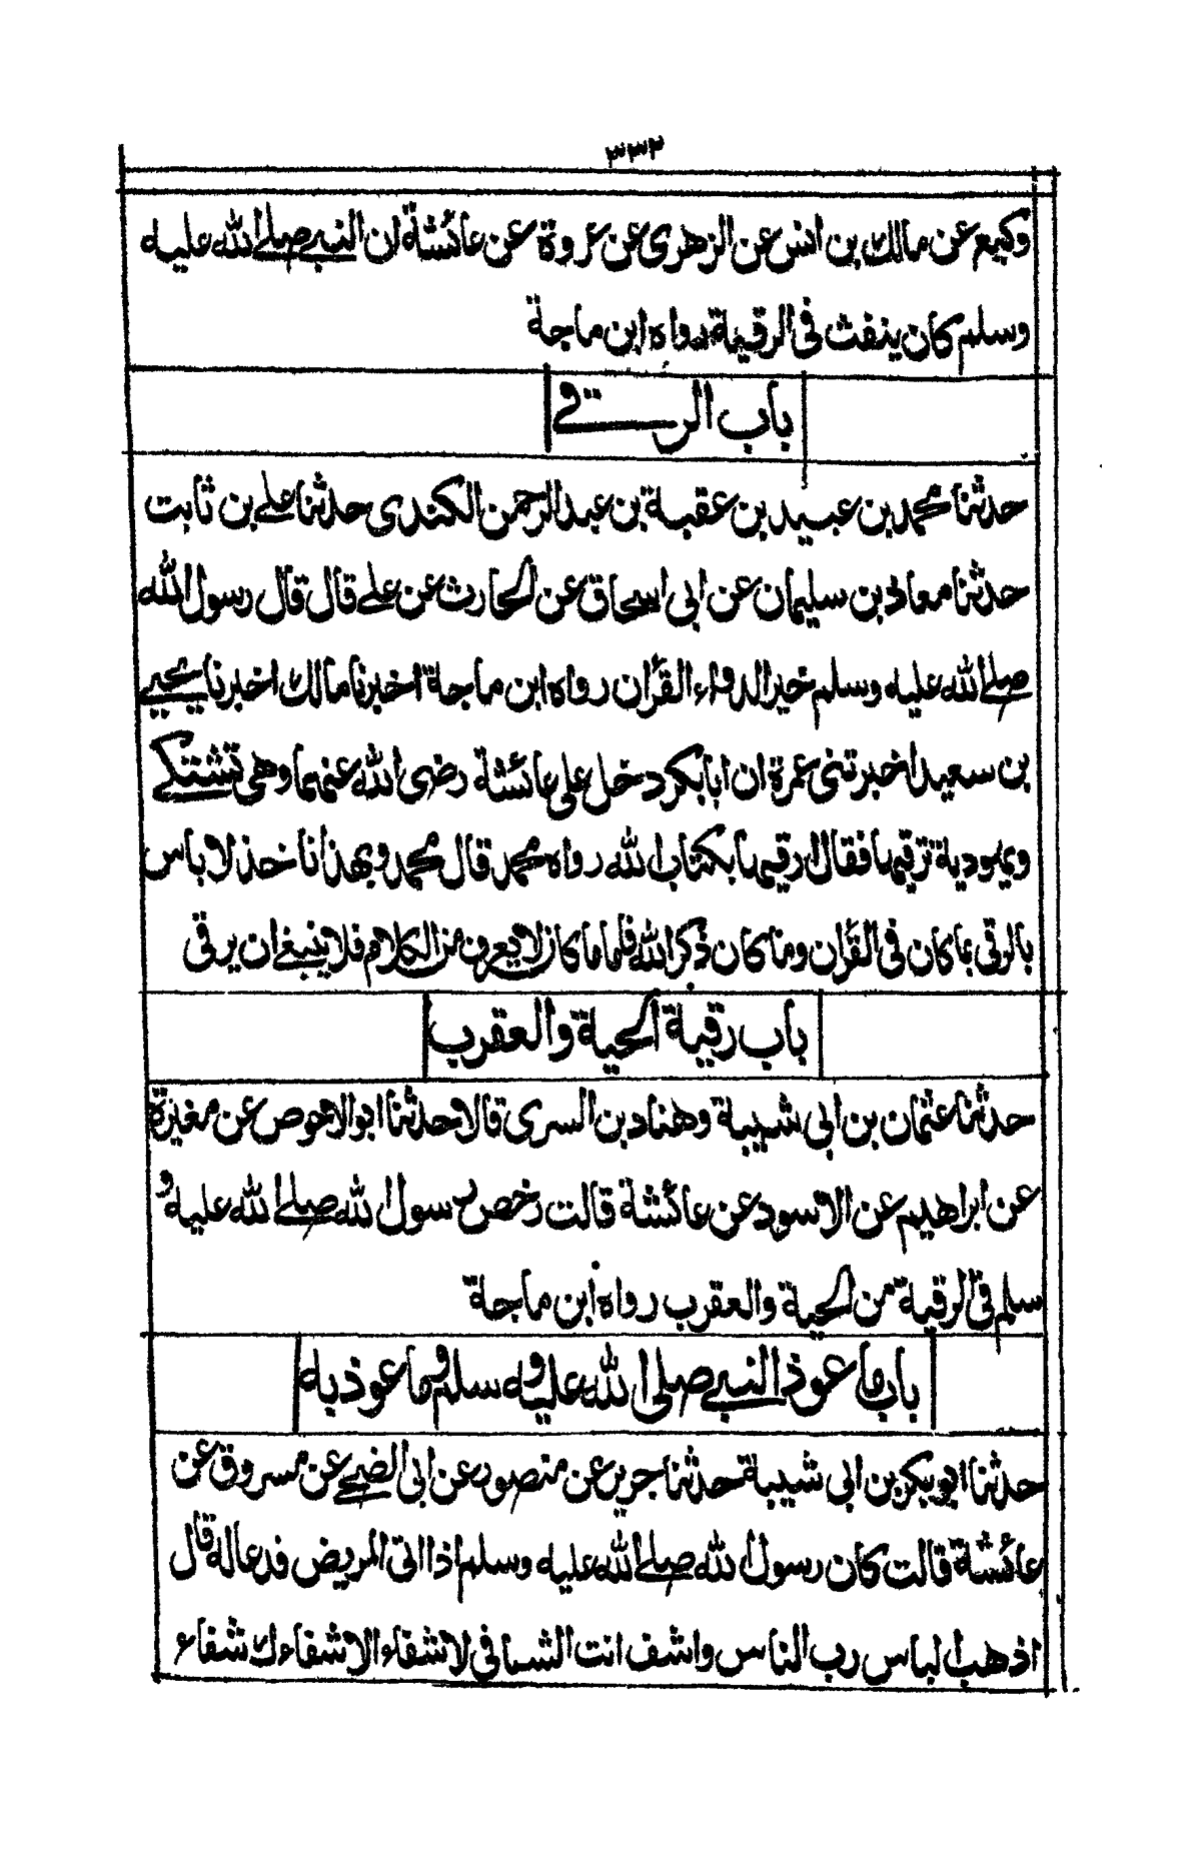 ٣٣٢
وكيع عن مالك بن انس عن الزهرى عن عروة عن عائشة ان النبي صلى الله عليه
وسلم كان ينفث فى الرقية رواه ابن ماجة
باب الرقى
حدثنا محمد بن عبيد بن عقبة بن عبد الرحمن الكندى حدثنا على بن ثابت
حدثنا معاذ بن سليمان عن ابى اسحاق عن الحارث عن على قال قال رسول الله
صلى الله عليه وسلم خير الدواء القرآن رواه ابن ماجة اخبرنا مالك اخبرنا يحيى
بن سعيد اخبرتنى عمرة ان ابا بكر دخل على عائشة رضى الله عنهما وهى تشتكى
ويهودية ترقيها فقال ارقيها بكتاب الله رواه محمد قال محمد وبهذا ناخذ لا باس
بالرقى بما كان فى القرآن وما كان ذكر الله فلما ما كان لا يعرف من الكلام فلا ينبغى ان يرقى
باب رقية الحية والعقرب
حدثنا عثمان بن ابى شيبة وهناد بن السرى قالا حدثنا ابو الاحوص عن مغيرة
عن ابراهيم عن الاسود عن عائشة قالت رخص رسول الله صلى الله عليه و
سلم فى الرقية من الحية والعقرب رواه ابن ماجة
باب ما عوذ النبي صلى الله عليه وسلم وما عوذ به
حدثنا ابو بكر بن ابى شيبة حدثنا جرير عن منصور عن ابى الضحى عن مسروق عن
عائشة قالت كان رسول الله صلى الله عليه وسلم اذا اتى المريض فدعا له قال
اذهب الباس رب الناس واشف انت الشافى لا شفاء الا شفاءك شفاء